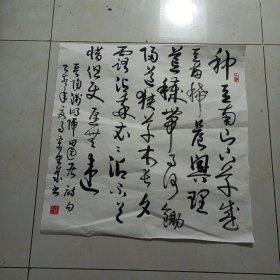 种豆南山下草盛
豆苗稀晨興理
荒穢帶月荷鋤
归道狭草木長夕
露沾我衣衣沾不足
惜但使愿無違
晋陶渊明归田园居诗句